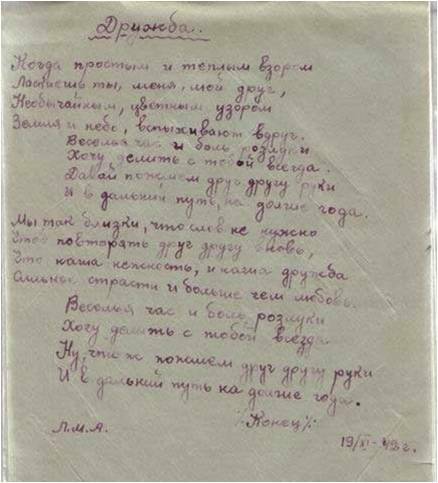 Дружба.
Когда простым и теплым взором
Ласкаешь ты, меня, мой друг,
Необычайным, цветным узором
Земля и небо, вспыхивают вдруг.
Веселья час и боль розлуки
Хочу делить с тобой всегда.
Давай пожмем друг другу руки
И в дальний путь, на долгие года.
Мы так близки, что слов не нужно
Чтоб повторять друг другу вновь,
Что наша нежность, и наша дружба
Сильнее страсти и больше чем любовь.
Веселья час и боль розлуки
Хочу делить с тобой всегда
Ну, что ж пожмем друг другу руки
И в дальний путь на долгие года.
Конец
Л.М.А.
19/XI-42г.